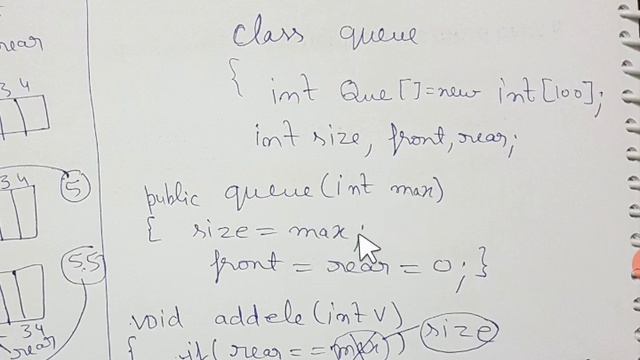 class queue
{ int Que[]=new int[100];
int size, front, rear;
public queue(int max)
{ size = max;
front = rear = 0; }
void addele(int v)
{ if(rear == max) size
rear
3 4
3 4
5
5.5
3 4
rear